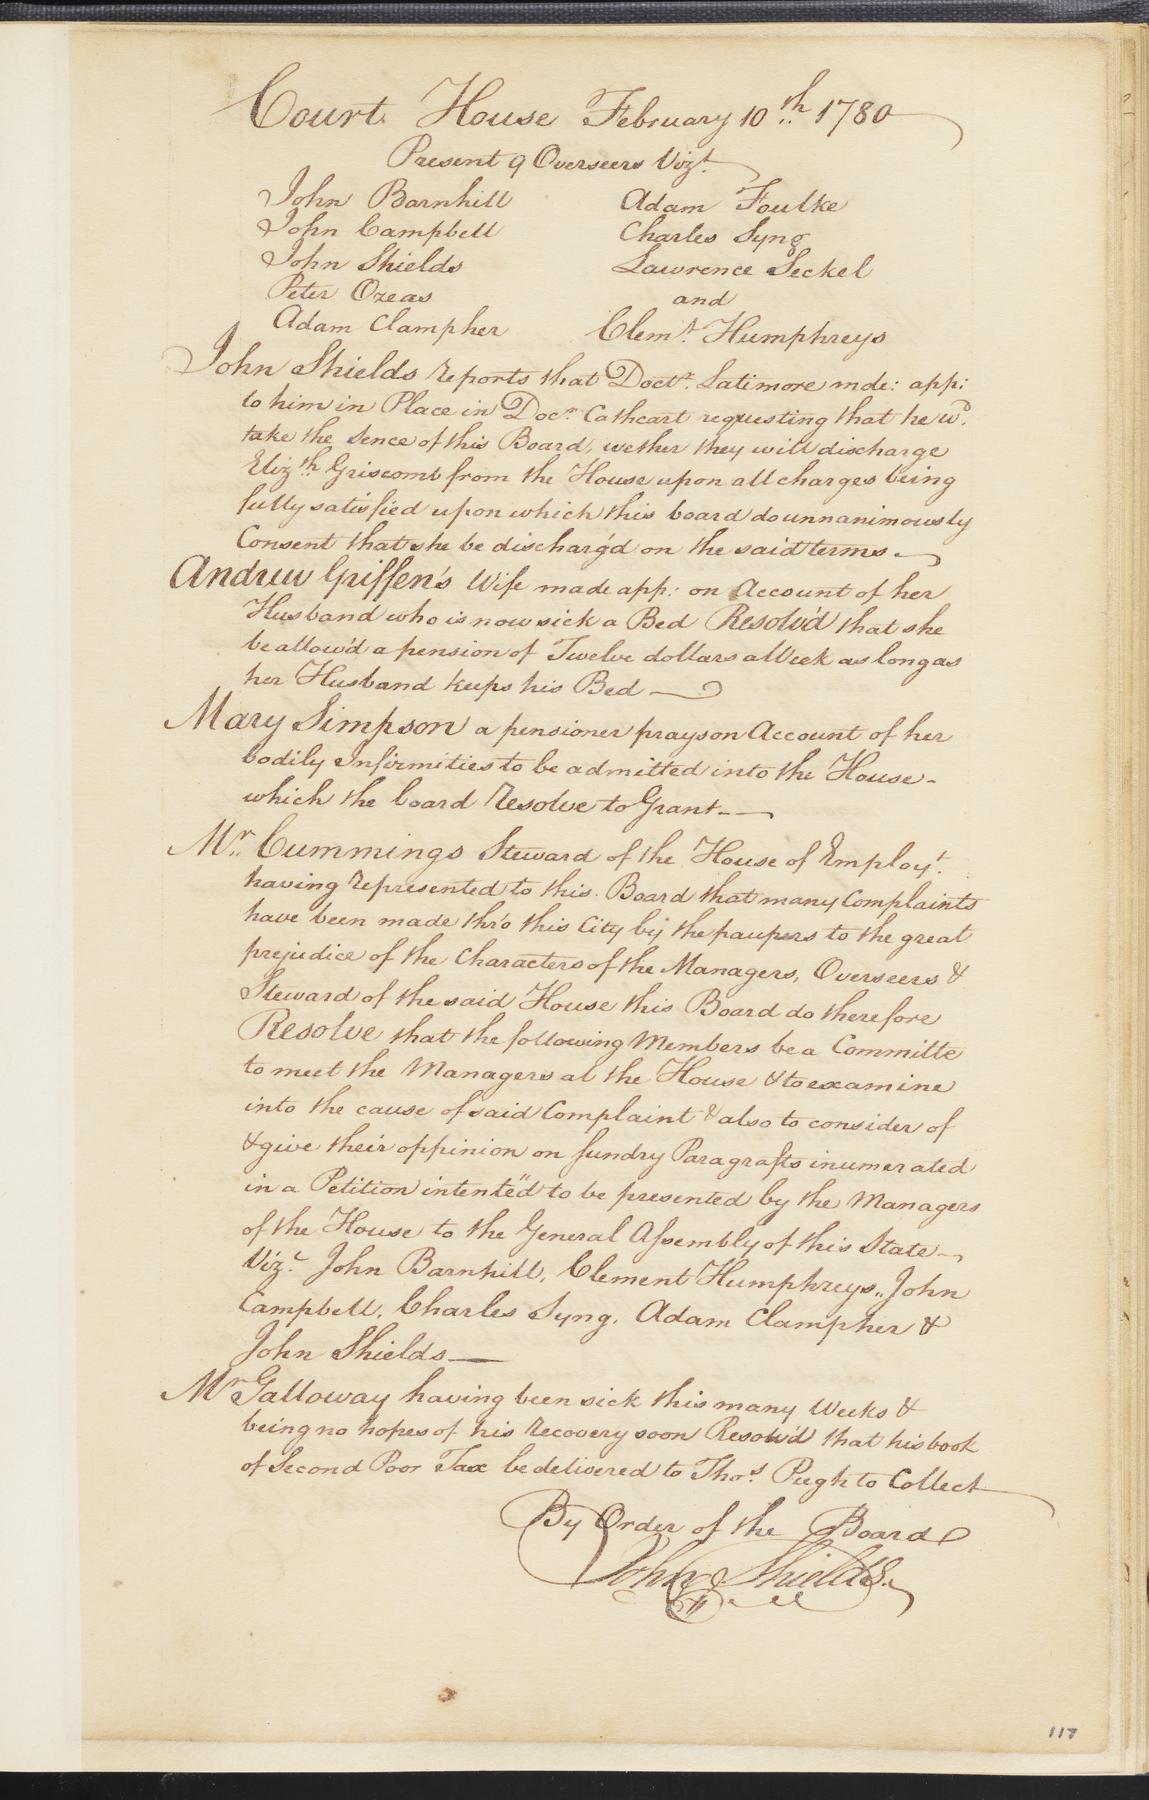 Court House February 10th. 1780
Present 9 Overseers Vizt.
John Barnhill Adam Foulke
John Campbell Charles Syng
John Shields Lawrence Seckel
Peter Ozeas and
Adam Clampher Clemt. Humphreys
John Shields reports that Doctr. Latimore mde: app:
to him in Place in Docr. Cathcart requesting that he wd.
take the Sence of this Board, wether they will discharge
Elizth. Griscomb from the House upon all charges being
fully satisfied upon which this board do unnanimously
Consent that she be discharg'd on the said terms
Andrew Griffen's Wife made app: on Account of her
Husband who is now sick a Bed Resolv'd that she
be allow'd a pension of Twelve dollars a Week as long as
her Husband keeps his Bed
Mary Simpson a pensioner prays on Account of her
bodily Infirmities to be admitted into the House -
which the board Resolve to Grant
Mr. Cummings Steward of the House of Employt.
having represented to this Board that many Complaints
have been made thr'o this City by the paupers to the great
prejudice of the Characters of the Managers, Overseers &
Steward of the said House this Board do therefore
Resolve that the following Members be a Committe
to meet the Managers at the House & to examine
into the cause of said Complaint & also to consider of
& give their oppinion on sundry Paragrafts inumerated
in a Petition intented to be presented by the Managers
of the House to the General Assembly of this State
Vizt. John Barnhill, Clement Humphreys, John
Campbell, Charles Syng, Adam Clampher &
John Shields
Mr Galloway having been sick this many Weeks &
being no hopes of his recovery soon Resolv'd that his book
of Second Poor Tax be delivered to Thos. Pugh to Collect
By Order of the Board
John Shields.
117